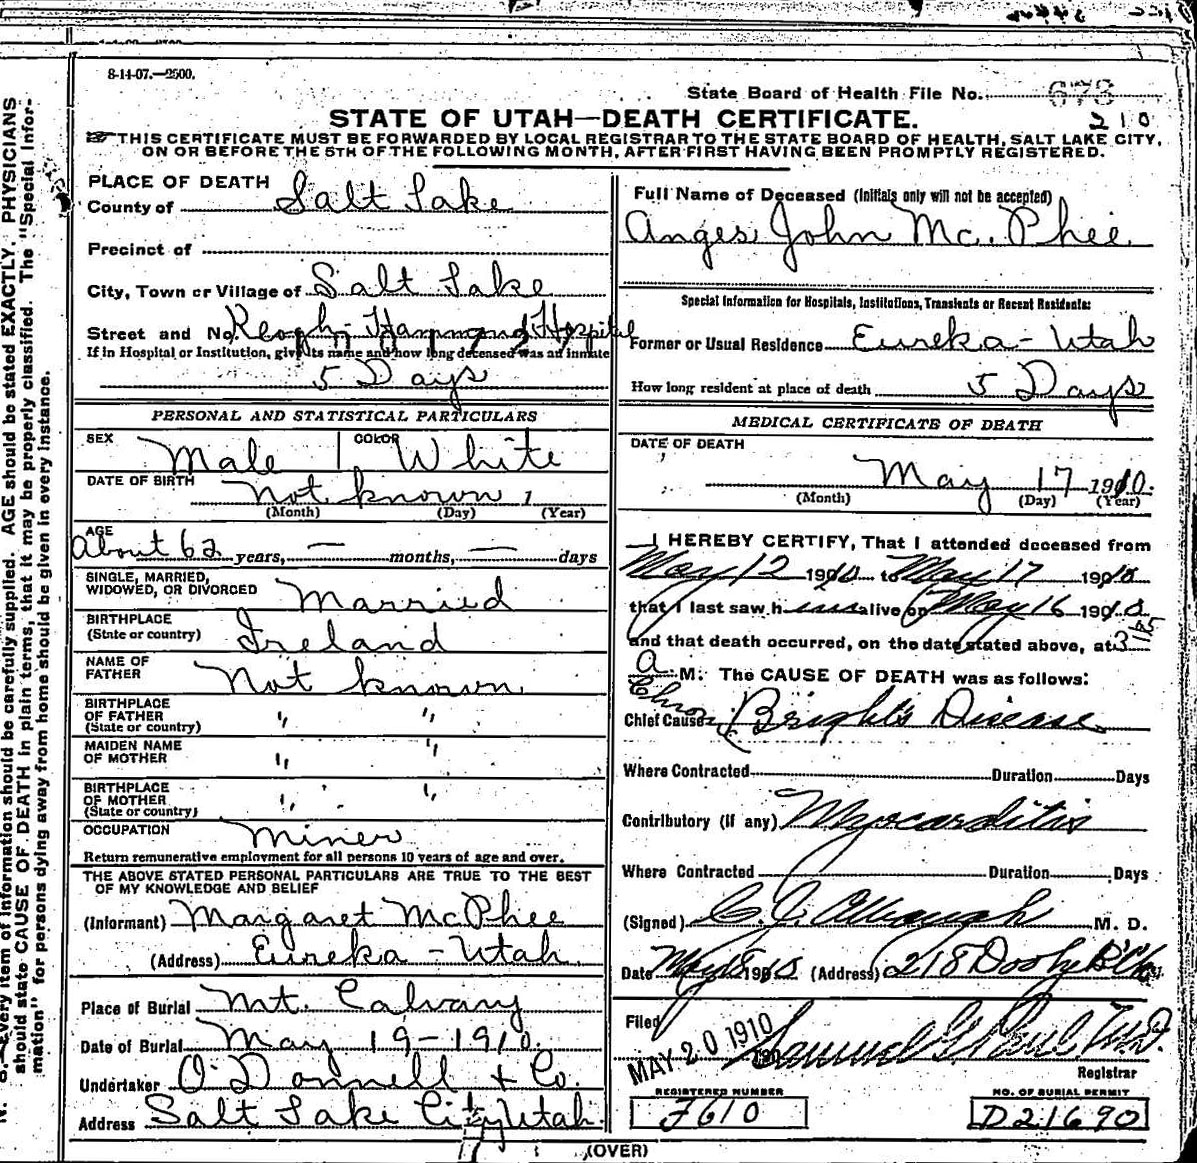 8-14-07.—2500.
State Board of Health File No. 673
210
STATE OF UTAH—DEATH CERTIFICATE.
THIS CERTIFICATE MUST BE FORWARDED BY LOCAL REGISTRAR TO THE STATE BOARD OF HEALTH, SALT LAKE CITY,
ON OR BEFORE THE 5TH OF THE FOLLOWING MONTH, AFTER FIRST HAVING BEEN PROMPTLY REGISTERED.
PLACE OF DEATH
County of Salt Lake
Precinct of
City, Town or Village of Salt Lake
Street and No. Keogh-Hammond Hospital
If in Hospital or Institution, give its name and how long deceased was an inmate
5 Days
PERSONAL AND STATISTICAL PARTICULARS
SEX Male COLOR White
DATE OF BIRTH Not known 1
(Month) (Day) (Year)
AGE About 62 years, — months, — days
SINGLE, MARRIED,
WIDOWED, OR DIVORCED Married
BIRTHPLACE
(State or country) Ireland
NAME OF
FATHER Not known
BIRTHPLACE
OF FATHER " "
(State or country)
MAIDEN NAME
OF MOTHER " "
BIRTHPLACE
OF MOTHER " "
(State or country)
OCCUPATION Miner
Return remunerative employment for all persons 10 years of age and over.
THE ABOVE STATED PERSONAL PARTICULARS ARE TRUE TO THE BEST
OF MY KNOWLEDGE AND BELIEF
(Informant) Margaret McPhee
(Address) Eureka - Utah
Place of Burial Mt. Calvary
Date of Burial May 19-1910.
Undertaker O'Donnell + Co.
Address Salt Lake City Utah.
Full Name of Deceased (Initials only will not be accepted)
Anges John Mc. Phee
Special Information for Hospitals, Institutions, Transients or Recent Residents:
Former or Usual Residence Eureka - Utah
How long resident at place of death 5 Days
MEDICAL CERTIFICATE OF DEATH
DATE OF DEATH
May 17 1910.
(Month) (Day) (Year)
I HEREBY CERTIFY, That I attended deceased from
May 12 1910 to May 17 1910
that I last saw him alive on May 16 1910
and that death occurred, on the date stated above, at 3 15
A M. The CAUSE OF DEATH was as follows:
Chief Cause Chron. Bright's Disease
Where Contracted Duration Days
Contributory (if any) Myocarditis
Where Contracted Duration Days
(Signed) M. D.
Date May 18 1910 (Address) 218 Dooly Blk
Filed
MAY 20 1910 190 Samuel G Paul M.D.
Registrar
REGISTERED NUMBER
J610
NO. OF BURIAL PERMIT
D21690
(OVER)
N. B.—Every item of information should be carefully supplied. AGE should be stated EXACTLY. PHYSICIANS
should state CAUSE OF DEATH in plain terms, that it may be properly classified. The "Special Infor-
mation" for persons dying away from home should be given in every instance.